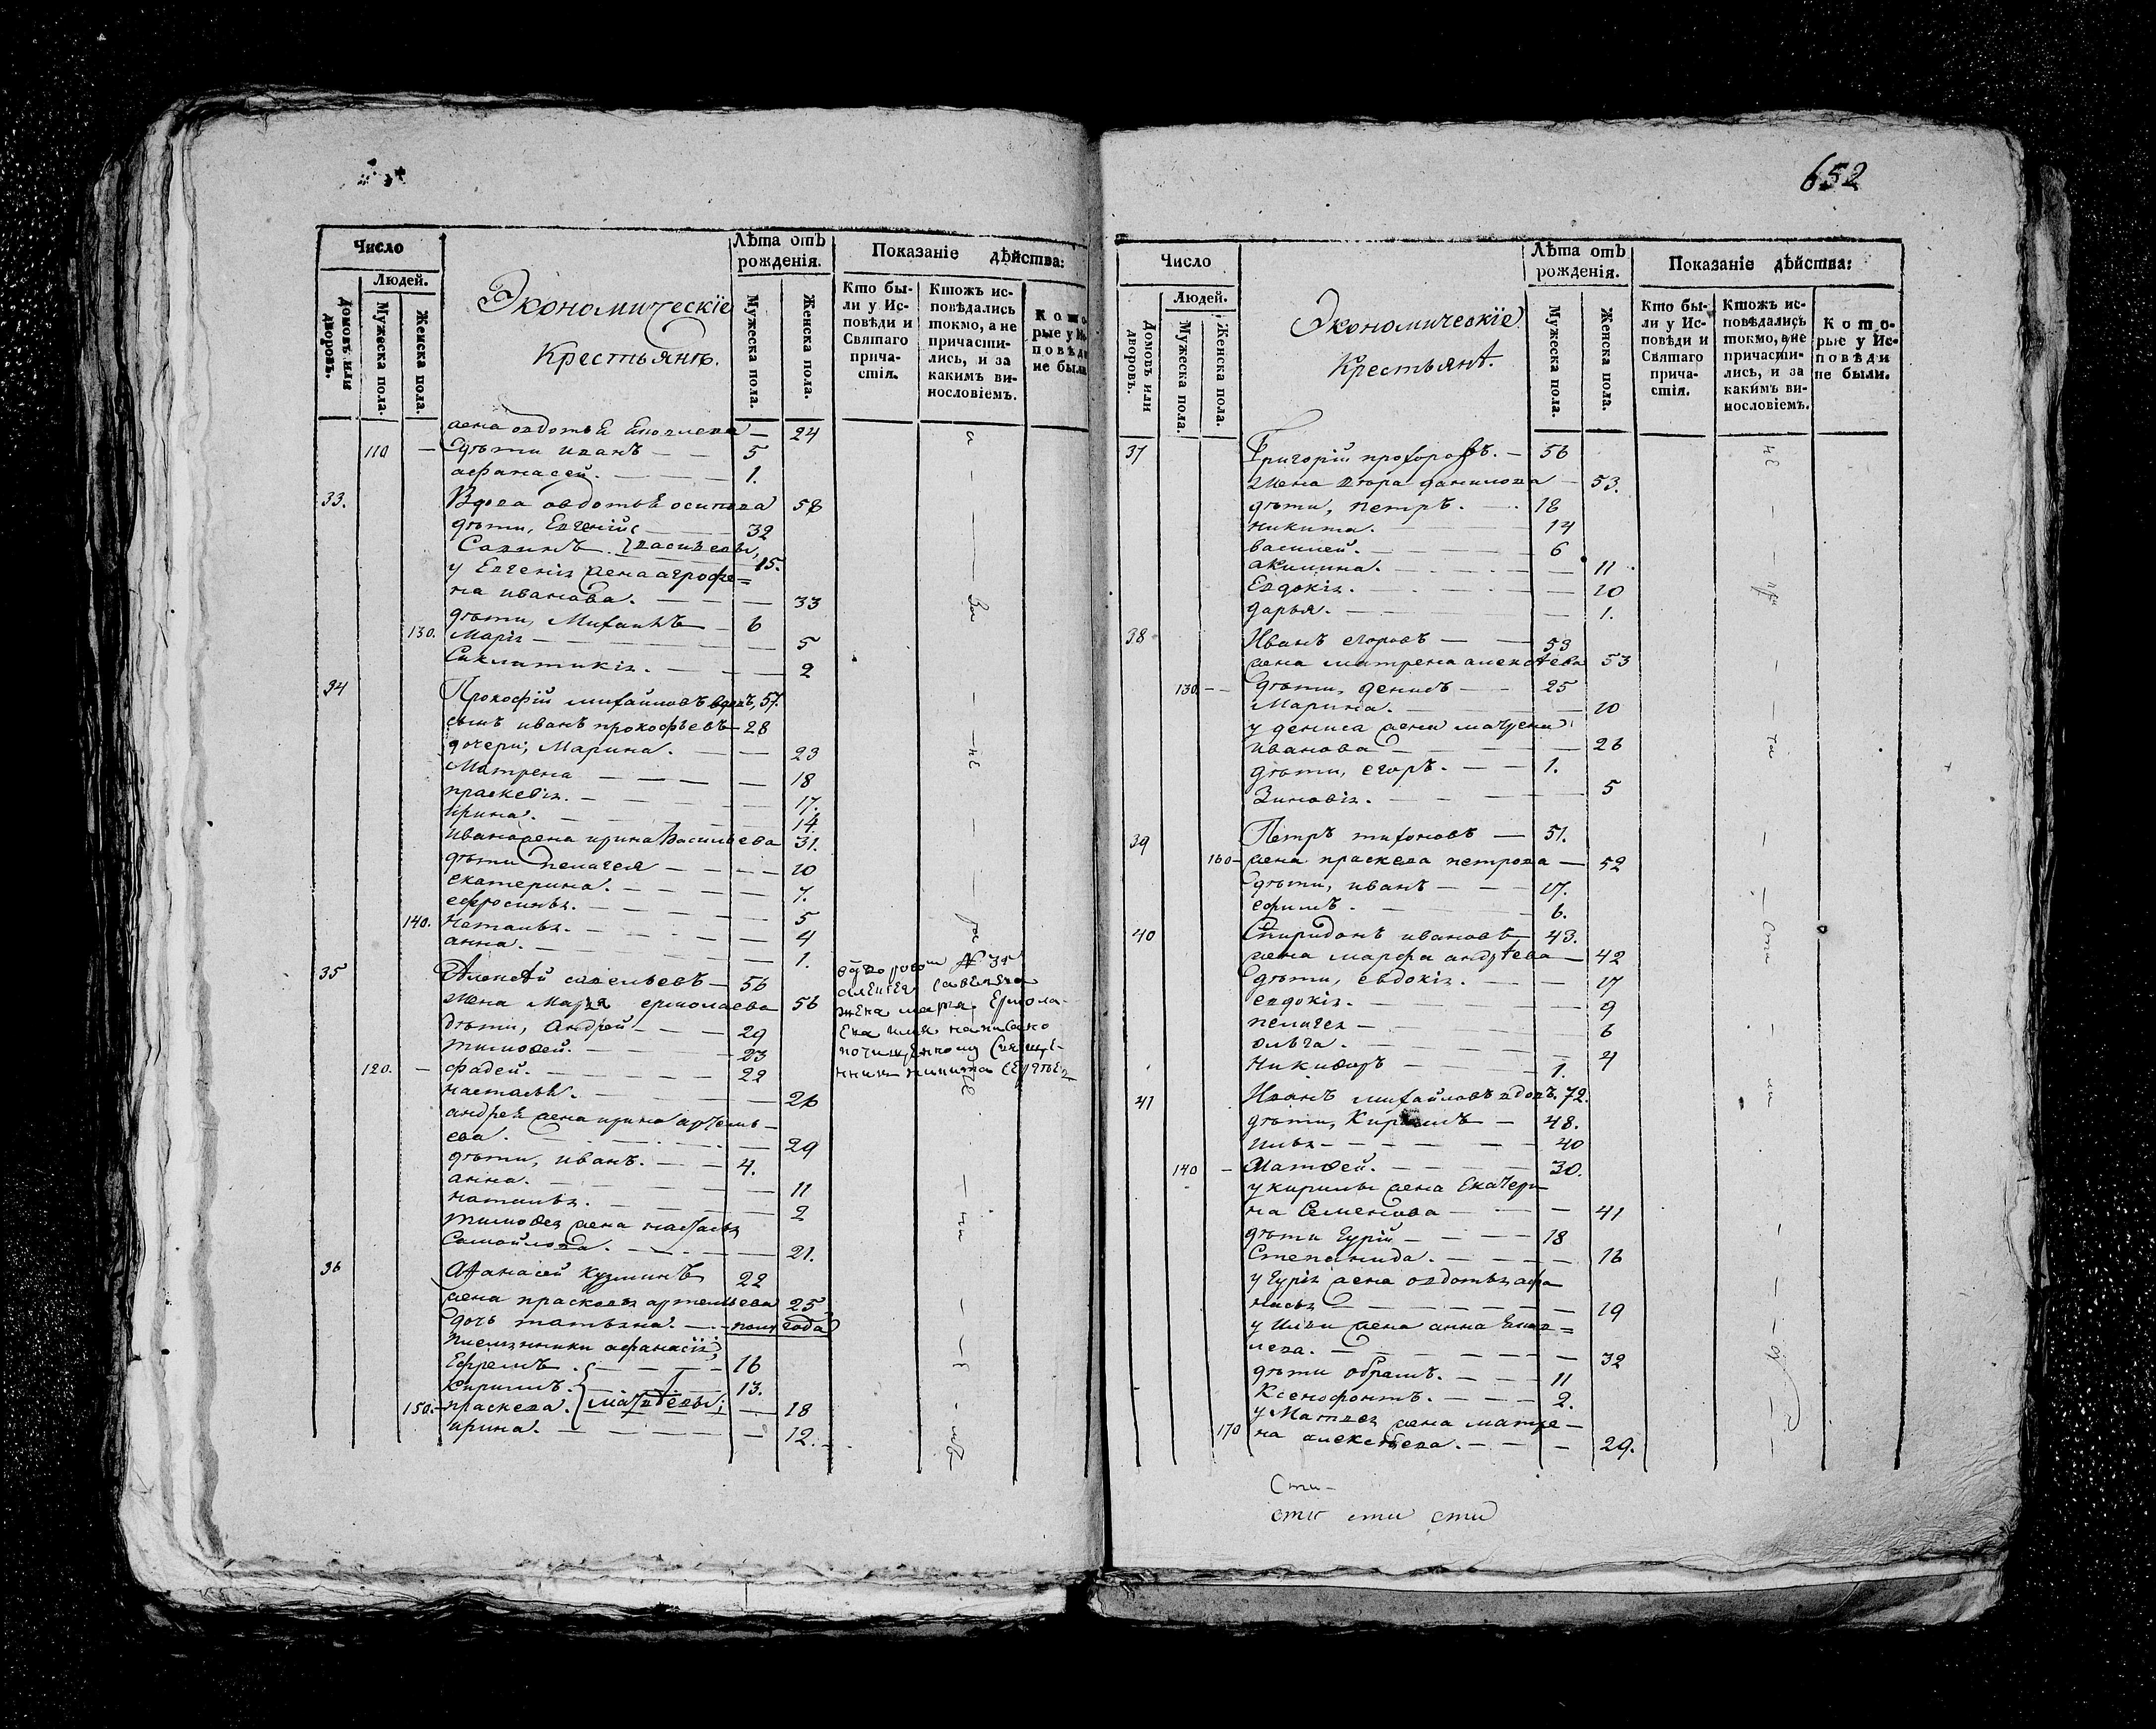 Число
Людей.
Домовъ или дворовъ.
Мужеска пола.
Женска пола.
Экономическіе
Крестьянѣ.
Лѣта отъ рожденія.
Мужеска пола.
Женска пола.
Показаніе дѣйства:
Кто бы-
ли у Ис-
повѣди и
Святаго
прича-
стія.
Ктожъ ис-
повѣдались
токмо, а не
причасти-
лись, и за
какимъ ви-
нословіемъ.
К о т о
рые у Ис
п о в ѣ д и
не были
жена овдотья 24
110 — дѣти иванъ — — 5
афанасей. — — 1.
33. Вдова овдотья осипова 58
дѣти, Евгеній — 32
Савинъ. васильевы, 15.
у Евгенія жена агрофе=
на иванова. — — — 33
дѣти, Михаилъ — 6
130. Марія — — — 5
2
34 Прокофій михайловъ вдовъ, 57.
сынъ иванъ прокофьевъ — 28
дочери, Марина. — — 23
Матрена — — — 18
праскевія. — — 17.
ирина. — — 14
ивана жена ирина Васильева 31.
дѣти пелагея — — — 10
екатерина. — — — 7.
ефросинья. — — — 5
140. наталья. — — — 4
анна. — — — 1.
35 Алексѣй савельевъ — 56
жена Марья ермолаева 56
дѣти, Андрей — — 29
тимофей. — — 23
120. — фадей. — — 22
наталья. — — — 26
андрея жена ирина артемь-
ева. — — — 29
дѣти, иванъ. — — 4.
анна. — — — 11
наталья. — — — 2
тимофея жена наталья
Самойлова. — — 21.
36 Афанасей Кузминъ 22
жена прасковья артемьева 25
дочь татьяна. — полугода
племянники афанасія;
Ефремъ. — — 16
Кирилъ. — 13.
150. — праскева. матвѣевы; — 18
ирина. — — — 12.
№ 35
жена марья Ермола-
652
Число
Людей.
Домовъ или дворовъ.
Мужеска пола.
Женска пола.
Экономическіе
Крестьянѣ.
Лѣта отъ рожденія.
Мужеска пола.
Женска пола.
Показаніе дѣйства:
Кто бы-
ли у Ис-
повѣди и
Святаго
прича-
стія.
Ктожъ ис-
повѣдались
токмо, а не
причасти-
лись, и за
какимъ ви-
нословіемъ.
К о т о-
рые у Ис-
п о в ѣ д и
не были.
37 Григорій прохоровъ. — 56
жена данилова — 53.
дѣти, петръ. — 18
никита. — — 14
василей. — — 6
акилина. — — — 11
Евдокія. — — — 10
дарья. — — — 1.
38 Иванъ егоровъ — — 53
жена матрена алексѣева 53
130. — дѣти, денисъ — — 25
Марина. — — — 10
у дениса жена
иванова — — — 26
дѣти, егоръ. — — 1.
Зиновія. — — — 5
39 Петръ тихоновъ — 51.
160 — жена праскева петрова — 52
дѣти, иванъ — — 17.
ефимъ. — — 6.
40 Спиридонъ ивановъ — 43.
жена марфа андрѣева — 42
дѣти, евдокія. — — 17
евдокія. — — — 9
пелагея — — — 6
ольга. — — — 4
Никифоръ — — 1.
41 Иванъ михайловъ вдовъ. 72.
дѣти, Кирилъ — 48.
илья — — — 40
140 — Матвей. — — 30.
у кирилы жена Екатери-
на Семенова — — — 41
дѣти Гурій — — 18
Степанида. — — — 16
у Гурія жена овдотья афа-
насья — — — 19
у Ильи жена анна
32
дѣти обрамъ. — — 11
Ксенофонтъ. — — 2.
у Матвея жена матре-
170 на алексѣева. — — 29.
Сти-
сти сти сти